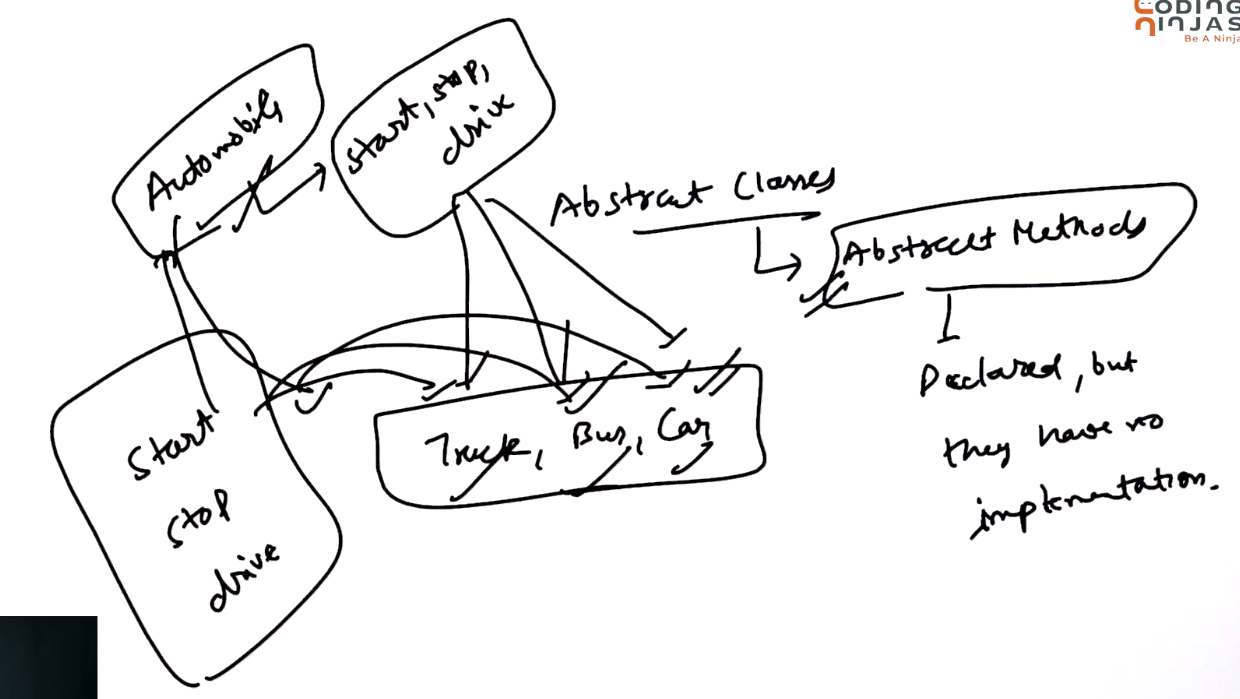 CODING
NINJAS
Be A Ninja
Automobile
start, stop,
drive
Abstract Classes
Abstract Methods
Declared, but
they have no
implementation.
Truck, Bus, Car
start
stop
drive